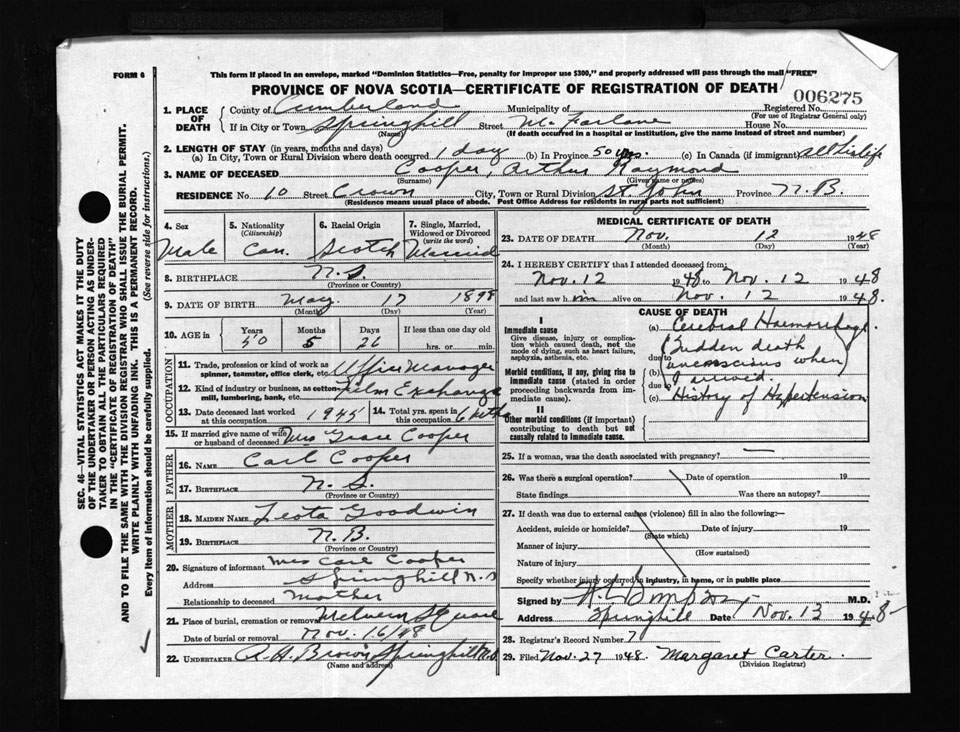 FORM 6
This form if placed in an envelope, marked "Dominion Statistics—Free, penalty for improper use $300," and properly addressed will pass through the mail "FREE"
PROVINCE OF NOVA SCOTIA—CERTIFICATE OF REGISTRATION OF DEATH
006275
1. PLACE OF DEATH
County of Cumberland Municipality of Registered No.
(For use of Registrar General only)
If in City or Town Springhill Street McFarlane House No.
(Name) (If death occurred in a hospital or institution, give the name instead of street and number)
2. LENGTH OF STAY (in years, months and days)
(a) In City, Town or Rural Division where death occurred 1 day (b) In Province 50 yrs. (c) In Canada (if immigrant) all his life
3. NAME OF DECEASED Cooper, Arthur Raymond
(Surname) (Given name or names)
RESIDENCE No 10 Street Crown City, Town or Rural Division St. John Province N.B.
(Residence means usual place of abode. Post Office Address for residents in rural parts not sufficient)
4. Sex
Male
5. Nationality (Citizenship)
Can.
6. Racial Origin
Scotch
7. Single, Married, Widowed or Divorced (write the word)
Married
8. BIRTHPLACE N.S.
(Province or Country)
9. DATE OF BIRTH May 17 1898
(Month) (Day) (Year)
10. AGE in Years Months Days If less than one day old
50 5 26 hrs. or min.
OCCUPATION
11. Trade, profession or kind of work as spinner, teamster, office clerk, etc. Office Manager
12. Kind of industry or business, as cotton mill, lumbering, bank, etc. Film Exchange
13. Date deceased last worked at this occupation 1945
14. Total yrs. spent in this occupation 6 mths
15. If married give name of wife or husband of deceased Mrs Grace Cooper
FATHER
16. NAME Carl Cooper
17. BIRTHPLACE N.S.
(Province or Country)
MOTHER
18. MAIDEN NAME Leota Goodwin
19. BIRTHPLACE N.B.
(Province or Country)
20. Signature of informant Mrs Carl Cooper
Address Springhill N.S
Relationship to deceased Mother
21. Place of burial, cremation or removal Melvern Square
Date of burial or removal Nov. 16/48
22. UNDERTAKER A.H. Brown, Springhill N.S
(Name and address)
MEDICAL CERTIFICATE OF DEATH
23. DATE OF DEATH Nov. 12 1948
(Month) (Day) (Year)
24. I HEREBY CERTIFY that I attended deceased from:
Nov. 12 1948 to Nov. 12 1948
and last saw him alive on Nov. 12 1948.
CAUSE OF DEATH
I
Immediate cause
Give disease, injury or complication which caused death, not the mode of dying, such as heart failure, asphyxia, asthenia, etc.
Morbid conditions, if any, giving rise to immediate cause (stated in order proceeding backwards from immediate cause).
II
Other morbid conditions (if important) contributing to death but not causally related to immediate cause.
(a) Cerebral Haemorrhage.
(Sudden death
due to unconscious when
(b) I arrived.
due to
(c) History of Hypertension
25. If a woman, was the death associated with pregnancy? —
26. Was there a surgical operation? Date of operation 19
State findings Was there an autopsy?
27. If death was due to external causes (violence) fill in also the following:—
Accident, suicide or homicide? Date of injury 19
(State which)
Manner of injury
(How sustained)
Nature of injury
Specify whether injury occurred in industry, in home, or in public place
Signed by M.D.
Address Springhill Date Nov. 13 1948
28. Registrar's Record Number 7
29. Filed Nov. 27 1948. Margaret Carter.
(Division Registrar)
SEC. 46—VITAL STATISTICS ACT MAKES IT THE DUTY
OF THE UNDERTAKER OR PERSON ACTING AS UNDERTAKER
TO OBTAIN ALL THE PARTICULARS REQUIRED
IN THE "CERTIFICATE OF REGISTRATION OF DEATH"
AND TO FILE THE SAME WITH THE DIVISION REGISTRAR WHO SHALL ISSUE THE BURIAL PERMIT.
WRITE PLAINLY WITH UNFADING INK. THIS IS A PERMANENT RECORD.
Every item of information should be carefully supplied. (See reverse side for instructions.)